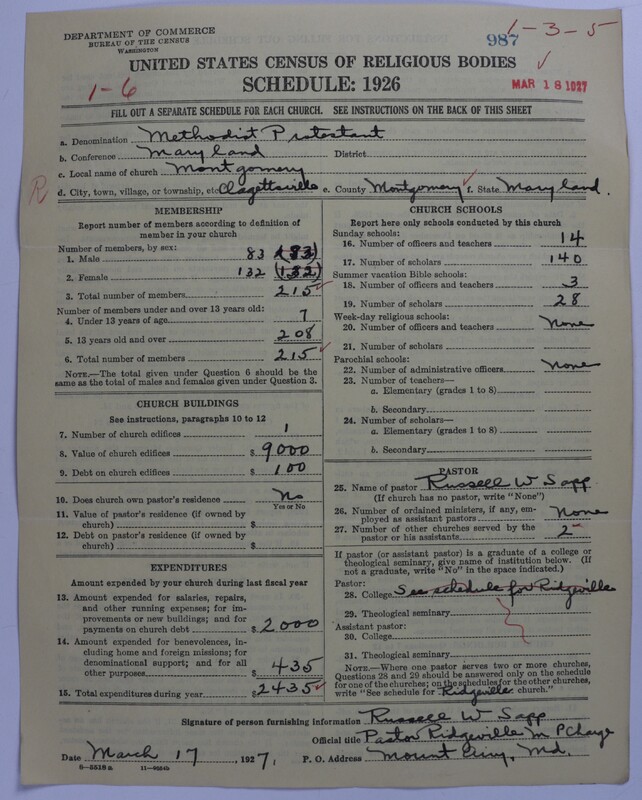 DEPARTMENT OF COMMERCE
BUREAU OF THE CENSUS
WASHINGTON
987
1-3-5
UNITED STATES CENSUS OF RELIGIOUS BODIES
SCHEDULE: 1926
1-6
MAR 18 1927
FILL OUT A SEPARATE SCHEDULE FOR EACH CHURCH. SEE INSTRUCTIONS ON THE BACK OF THIS SHEET
a. Denomination Methodist Protestant
b. Conference Maryland District
c. Local name of church Montgomery
R
d. City, town, village, or township, etc Clagettsville e. County Montgomery f. State Maryland.
MEMBERSHIP
Report number of members according to definition of
member in your church
Number of members, by sex:
1. Male 83 (83)
2. Female 132 (132)
3. Total number of members 215
Number of members under and over 13 years old:
4. Under 13 years of age 7
5. 13 years old and over 208
6. Total number of members 215
NOTE.—The total given under Question 6 should be the
same as the total of males and females given under Question 3.
CHURCH BUILDINGS
See instructions, paragraphs 10 to 12
7. Number of church edifices 1
8. Value of church edifices $ 9000
9. Debt on church edifices $ 100
10. Does church own pastor's residence No
Yes or No
11. Value of pastor's residence (if owned by
church) $
12. Debt on pastor's residence (if owned by
church) $
EXPENDITURES
Amount expended by your church during last fiscal year
13. Amount expended for salaries, repairs,
and other running expenses; for im-
provements or new buildings; and for
payments on church debt $ 2000
14. Amount expended for benevolences, in-
cluding home and foreign missions; for
denominational support; and for all
other purposes $ 435
15. Total expenditures during year $ 2435
CHURCH SCHOOLS
Report here only schools conducted by this church
Sunday schools:
16. Number of officers and teachers 14
17. Number of scholars 140
Summer vacation Bible schools:
18. Number of officers and teachers 3
19. Number of scholars 28
Week-day religious schools:
20. Number of officers and teachers None
21. Number of scholars
Parochial schools:
22. Number of administrative officers None
23. Number of teachers—
a. Elementary (grades 1 to 8)
b. Secondary
24. Number of scholars—
a. Elementary (grades 1 to 8)
b. Secondary
PASTOR
25. Name of pastor Russell W Sapp
(If church has no pastor, write "None")
26. Number of ordained ministers, if any, em-
ployed as assistant pastors None
27. Number of other churches served by the
pastor or his assistants 2
If pastor (or assistant pastor) is a graduate of a college or
theological seminary, give name of institution below. (If
not a graduate, write "No" in the space indicated.)
Pastor:
28. College See schedule for Ridgeville
29. Theological seminary
Assistant pastor:
30. College
31. Theological seminary
NOTE.—Where one pastor serves two or more churches,
Questions 28 and 29 should be answered only on the schedule
for one of the churches; on the schedules for the other churches,
write "See schedule for Ridgeville church."
Signature of person furnishing information Russell W Sapp
Official title Pastor Ridgeville M P Charge
Date March 17, 1927, P. O. Address Mount Airy, Md.